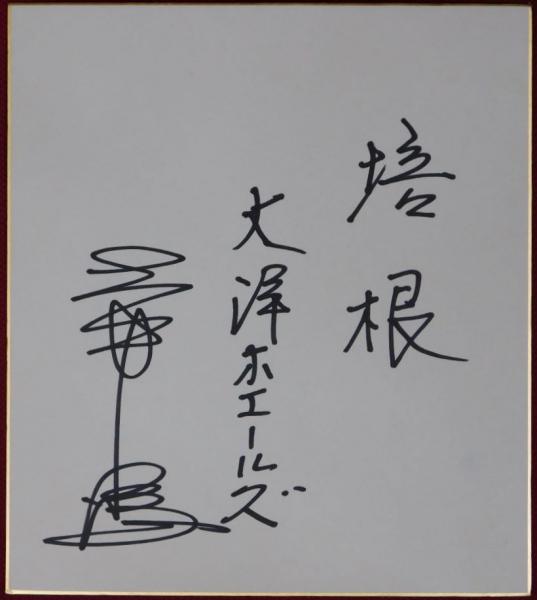 培根
大洋ホエールズ